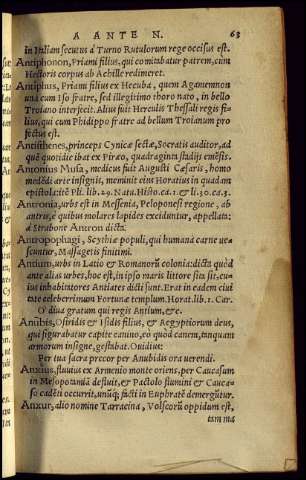 A ANTE N. 63
in Italiam secutus à Turno Rutulorum rege occisus est.
Antiphonon, Priami filius, qui comitabatur patrem, cùm
Hectoris corpus ab Achille redimeret.
Antiphus, Priami filius ex Hecuba, quem Agamemnon
unà cum Iso fratre, sed illegitimo thoro nato, in bello
Troiano interfecit. Alius fuit Herculis Thessali regis fi-
lius, qui cum Phidippo fratre ad bellum Troianum pro
fectus est.
Antisthenes, princeps Cynicæ sectæ, Socratis auditor, ad
què quotidie ibat ex Piræo, quadraginta stadijs emēsis.
Antonius Musa, medicus fuit Augusti Cæsaris, homo
medēdi arte insignis, meminit eius Horatius in quadam
epistola & Pli. lib. 29. Natu. Histo. ca. 1. & li. 30. ca. 3.
Antronia, urbs est in Messenia, Peloponesi regione, ab
antris, è quibus molares lapides exciduntur, appellata:
à Strabone Antron dicta.
Antropophagi, Scythiæ populi, qui humana carne ve-
scuntur, Massagetis finitimi.
Antium, urbs in Latio & Romanorū colonia: dicta quòd
ante alias urbes, hoc est, in ipso maris littore sita sit. cu-
ius inhabitatores Antiates dicti sunt. Erat in eadem civi
tate celeberrimum Fortunæ templum. Horat. lib. 1. Car.
O diua gratum qui regis Antium, &c.
Anubis, Osiridis & Isidis filius, & Aegyptiorum deus,
qui figurabatur capite canino, eò quòd canem, tanquam
armorum insigne, gestabat. Ouidius:
Per tua sacra precor per Anubidis ora uerendi.
Anxius, fluuius ex Armenio monte oriens, per Caucasum
in Mesopotamiā defluit, & Pactolo flumini & Cauca-
so cadēti occurrit, unúq; facti in Euphratē demergūtur.
Anxur, alio nomine Tarracina, Volscorū oppidum est,
tam ma